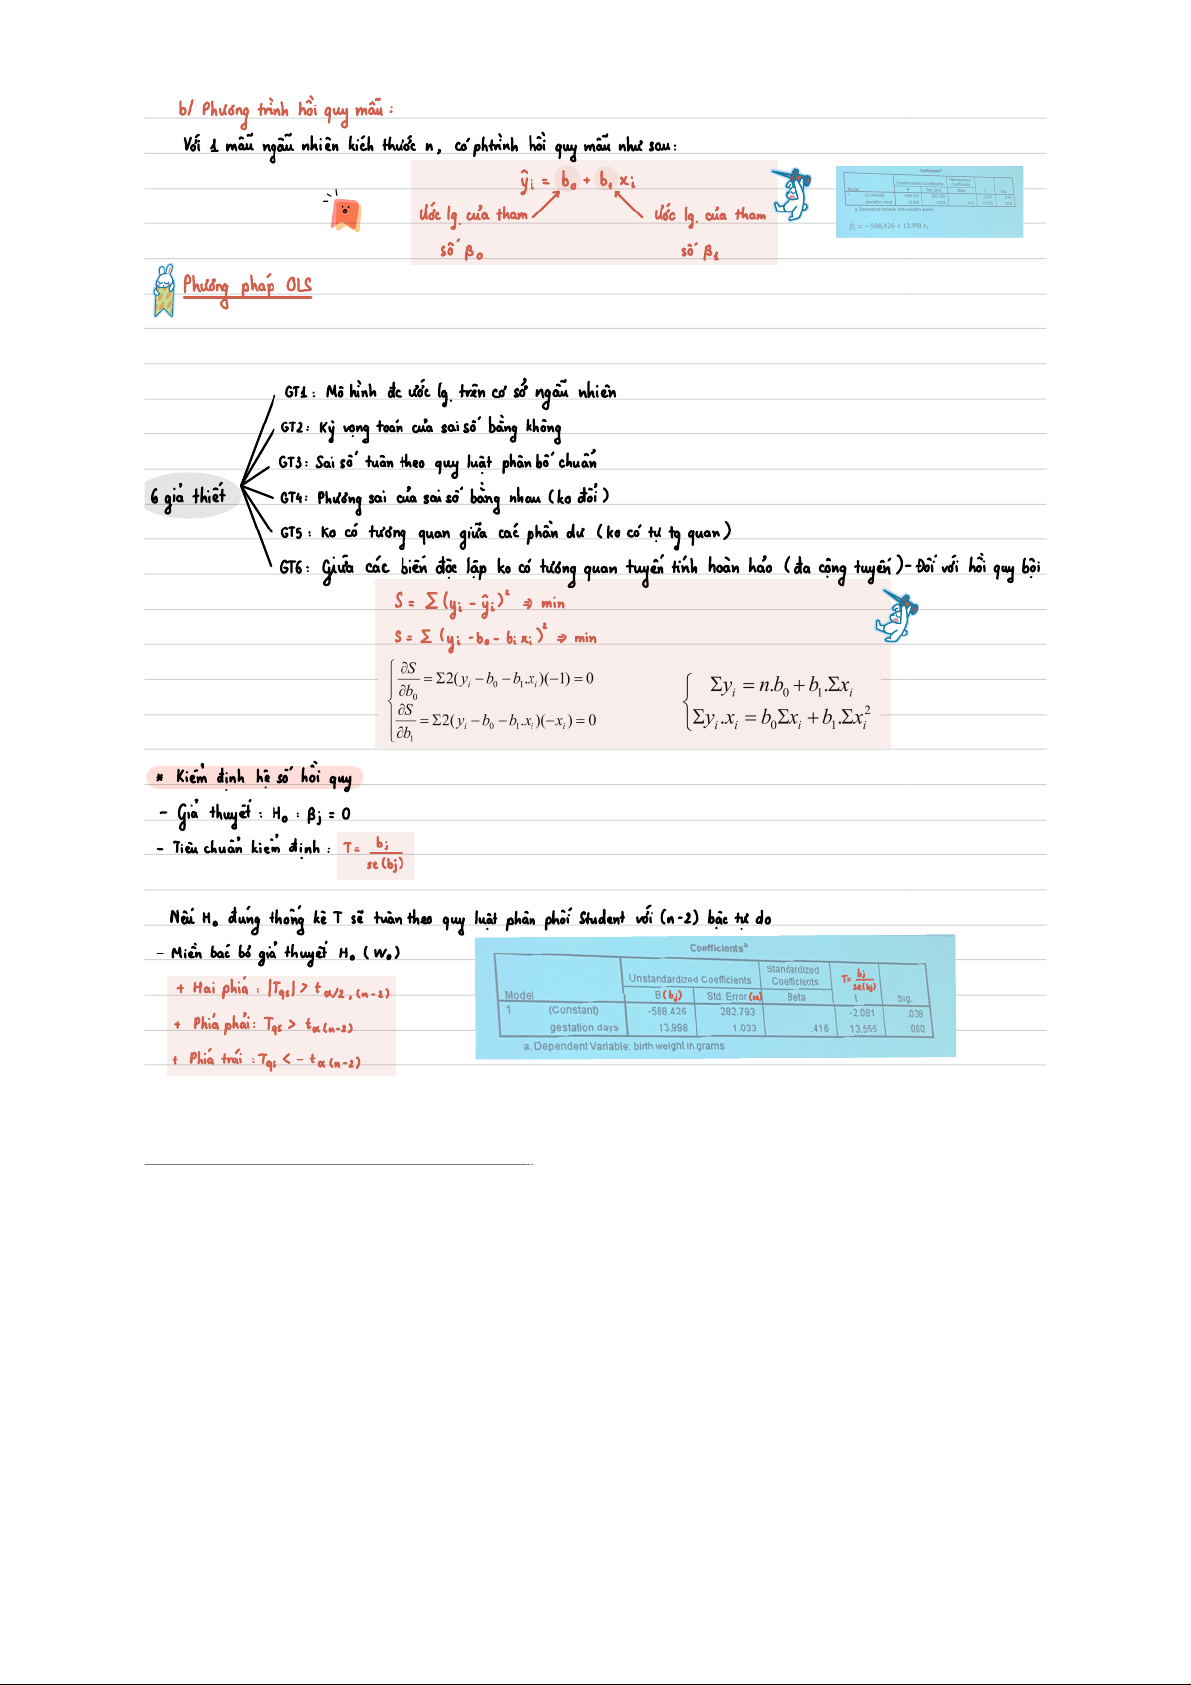 b/ Phương trình hồi quy mẫu:
Với 1 mẫu ngẫu nhiên kích thước n, có phtrình hồi quy mẫu như sau:
ŷᵢ = b₀ + b₁ xᵢ
Ước lg. của tham số β₀
Ước lg. của tham số β₁
Coefficientsᵃ
ŷᵢ = −588,426 + 13,998 xᵢ
Phương pháp OLS
6 giả thiết
GT1: Mô hình đc ước lg. trên cơ sở ngẫu nhiên
GT2: Kỳ vọng toán của sai số bằng không
GT3: Sai số tuân theo quy luật phân bố chuẩn
GT4: Phương sai của sai số bằng nhau (ko đổi)
GT5: Ko có tương quan giữa các phần dư (ko có tự tg quan)
GT6: Giữa các biến độc lập ko có tương quan tuyến tính hoàn hảo (đa cộng tuyến) - Đối với hồi quy bội
S = Σ(yᵢ - ŷᵢ)² ⇒ min
S = Σ (yᵢ - b₀ - bᵢ xᵢ)² ⇒ min
∂S/∂b₀ = Σ2(yᵢ − b₀ − b₁.xᵢ)(−1) = 0
∂S/∂b₁ = Σ2(yᵢ − b₀ − b₁.xᵢ)(−xᵢ) = 0
Σyᵢ = n.b₀ + b₁.Σxᵢ
Σyᵢ.xᵢ = b₀Σxᵢ + b₁.Σxᵢ²
* Kiểm định hệ số hồi quy
- Giả thuyết: H₀ : βj = 0
- Tiêu chuẩn kiểm định: T = bj / se(bj)
Nếu H₀ đúng thống kê T sẽ tuân theo quy luật phân phối Student với (n-2) bậc tự do
- Miền bác bỏ giả thuyết H₀ (W₀)
+ Hai phía: |Tqs| > t α/2, (n-2)
+ Phía phải: Tqs > t α (n-2)
+ Phía trái: Tqs < - t α (n-2)
Coefficientsᵃ
Model Unstandardized Coefficients Standardized Coefficients T = bj / se(bj)
B (bj) Std. Error (se) Beta t Sig.
1 (Constant) -588.426 282.793 -2.081 .038
gestation days 13.998 1.033 .416 13.555 .000
a. Dependent Variable: birth weight in grams